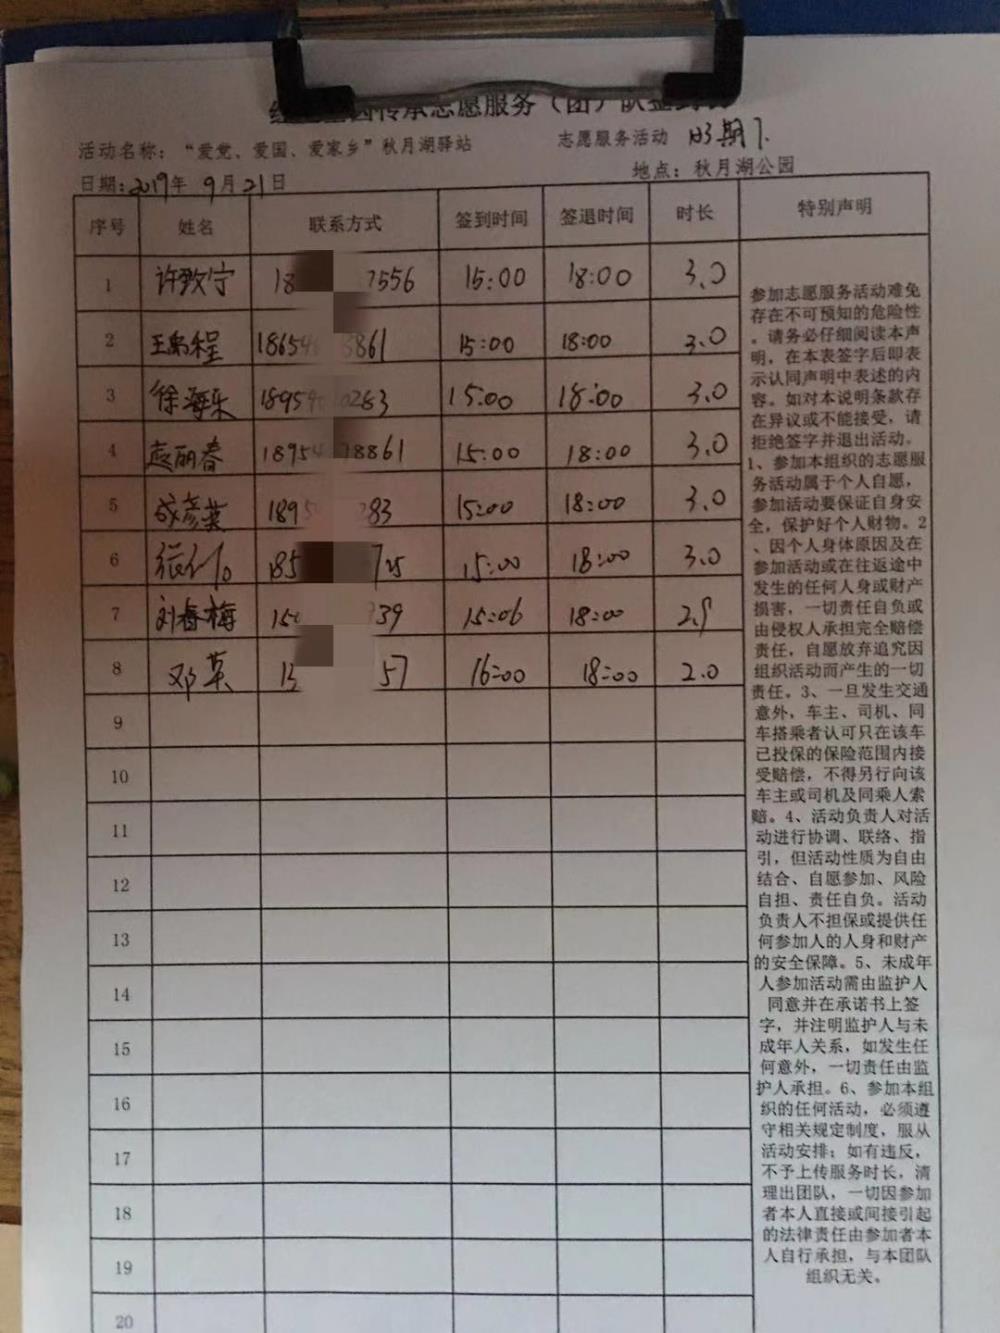 传承志愿服务（团）队签到表
活动名称：“爱党、爱国、爱家乡”秋月湖驿站 志愿服务活动
日期：2019年 9月21日 地点：秋月湖公园
序号 姓名 联系方式 签到时间 签退时间 时长 特别声明
1 许致宁 18 7556 15:00 18:00 3.0
2 18654 3861 15:00 18:00 3.0
3 徐海乐 1895 0283 15:00 18:00 3.0
4 18954 8861 15:00 18:00 3.0
5 成彦英 1895 283 15:00 18:00 3.0
6 185 15:00 18:00 3.0
7 刘春梅 150 739 15:06 18:00 2.9
8 邓英 13 57 16:00 18:00 2.0
9
10
11
12
13
14
15
16
17
18
19
20
参加志愿服务活动难免
存在不可预知的危险性
。请务必仔细阅读本声
明，在本表签字后即表
示认同声明中表述的内
容。如对本说明条款存
在异议或不能接受，请
拒绝签字并退出活动。
1、参加本组织的志愿服
务活动属于个人自愿，
参加活动要保证自身安
全，保护好个人财物。2
、因个人身体原因及在
参加活动或在往返途中
发生的任何人身或财产
损害，一切责任自负或
由侵权人承担完全赔偿
责任，自愿放弃追究因
组织活动而产生的一切
责任。3、一旦发生交通
意外，车主、司机、同
车搭乘者认可只在该车
已投保的保险范围内接
受赔偿，不得另行向该
车主或司机及同乘人索
赔。4、活动负责人对活
动进行协调、联络、指
引，但活动性质为自由
结合、自愿参加、风险
自担、责任自负。活动
负责人不担保或提供任
何参加人的人身和财产
的安全保障。5、未成年
人参加活动需由监护人
同意并在承诺书上签
字，并注明监护人与未
成年人关系，如发生任
何意外，一切责任由监
护人承担。6、参加本组
织的任何活动，必须遵
守相关规定制度，服从
活动安排；如有违反，
不予上传服务时长，清
理出团队，一切因参加
者本人直接或间接引起
的法律责任由参加者本
人自行承担，与本团队
组织无关。